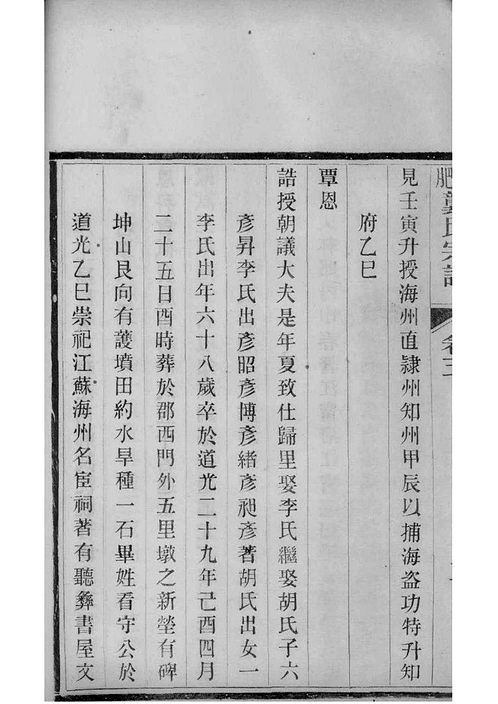 肥龔氏宗譜 卷三
見壬寅升授海州直隸州知州甲辰以捕海盜功特升知
府乙巳
覃恩
誥授朝議大夫是年夏致仕歸里娶李氏繼娶胡氏子六
彥昇李氏出彥昭彥博彥緒彥昶彥著胡氏出女一
李氏出年六十八歲卒於道光二十九年己酉四月
二十五日酉時葬於郡西門外五里墩之新塋有碑
坤山艮向有護墳田約水旱種一石畢姓看守公於
道光乙巳崇祀江蘇海州名臣祠著有聽彝書屋文